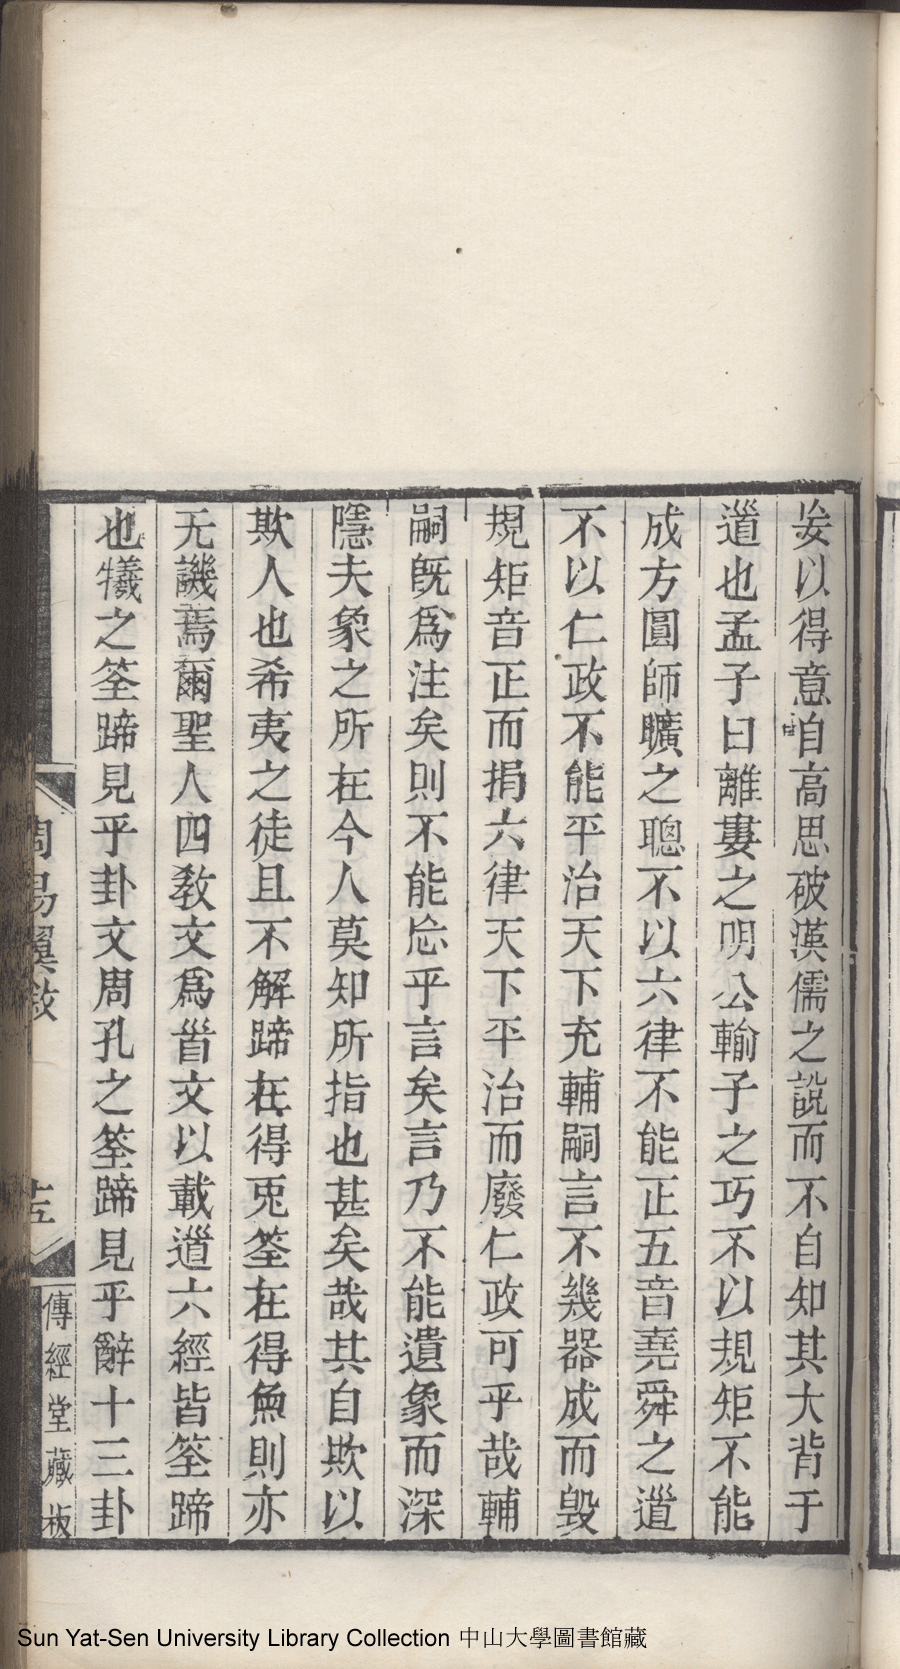 妄以得意自高思破漢儒之說而不自知其大背于
道也孟子曰離婁之明公輸子之巧不以規矩不能
成方圓師曠之聰不以六律不能正五音堯舜之道
不以仁政不能平治天下充輔嗣言不幾器成而毀
規矩音正而捐六律天下平治而廢仁政可乎哉輔
嗣旣爲注矣則不能忘乎言矣言乃不能遺象而深
隱夫象之所在今人莫知所指也甚矣哉其自欺以
欺人也希夷之徒且不解蹄在得兎筌在得魚則亦
无譏焉爾聖人四教文爲首文以載道六經皆筌蹄
也犧之筌蹄見乎卦文周孔之筌蹄見乎辭十三卦
周易翼
傳經堂藏板
Sun Yat-Sen University Library Collection 中山大學圖書館藏